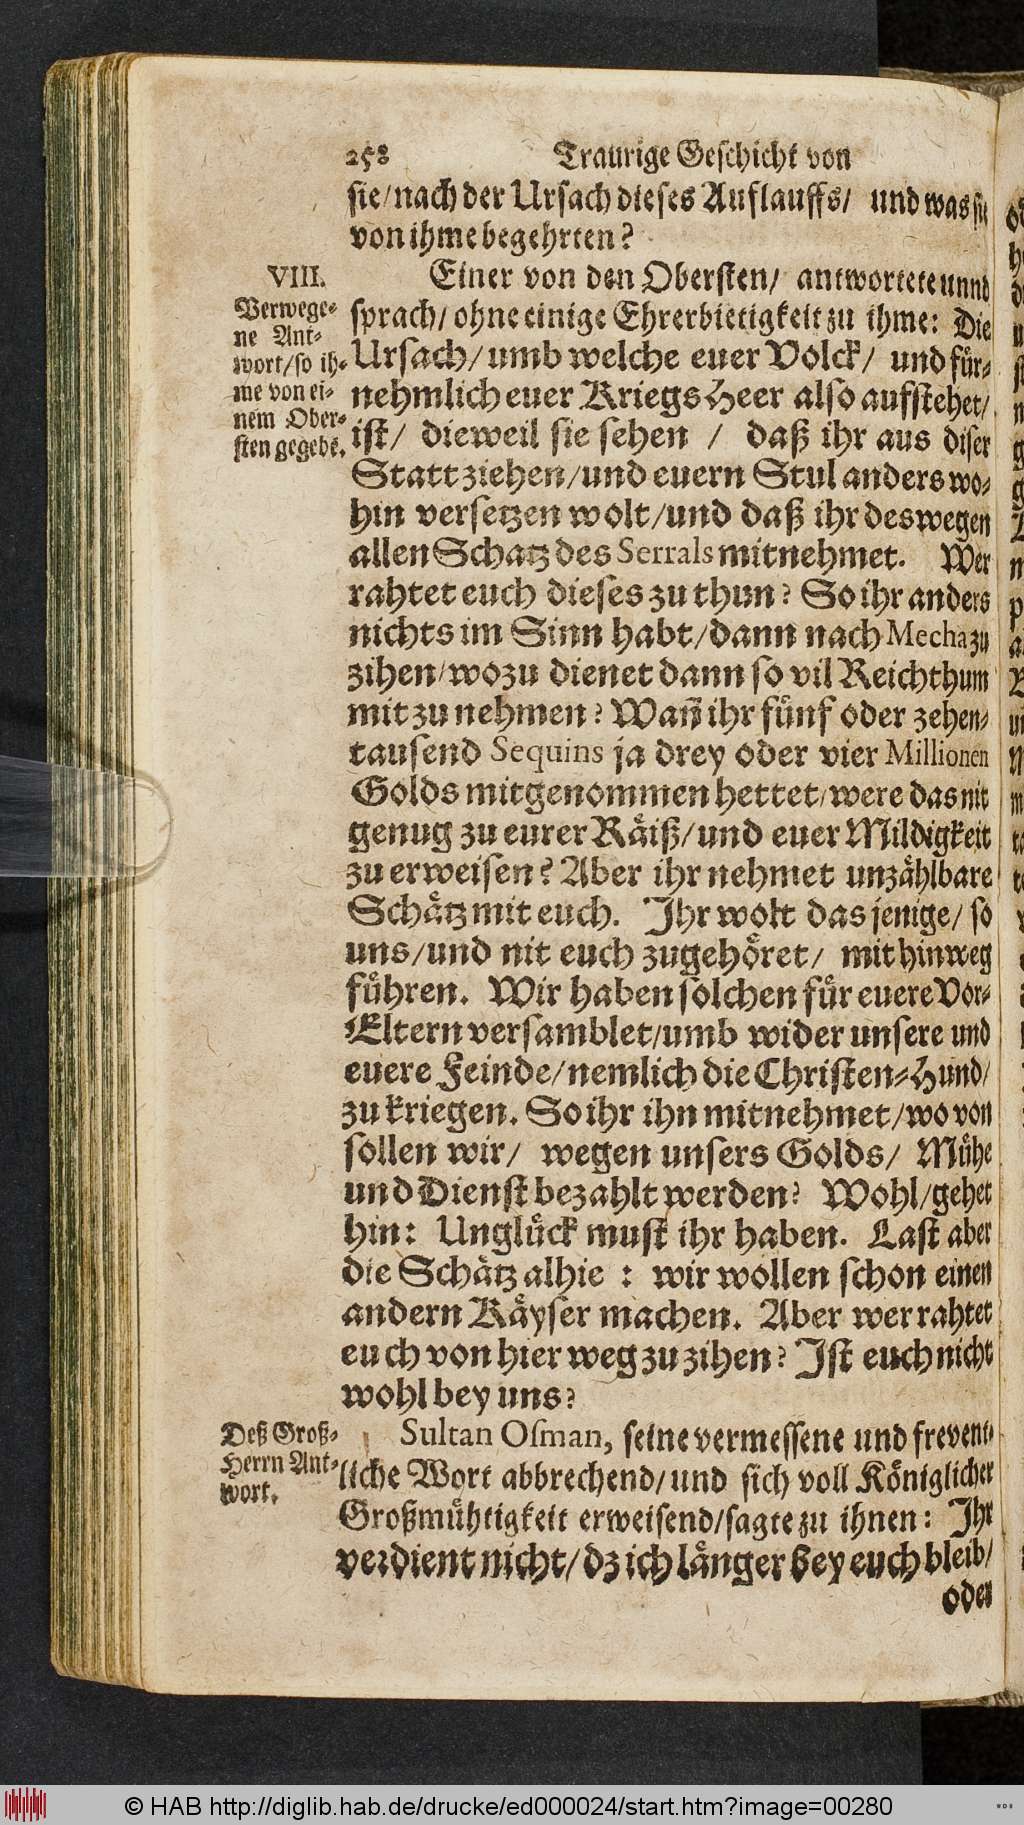 258 Traurige Geschicht von
sie/ nach der Ursach dieses Auflauffs/ und was sie
von ihme begehrten?
VIII.
Verwege-
ne Ant-
wort/ so ih-
me von ei-
nem Ober-
sten gegebē.
Einer von den Obersten/ antwortete unnd
sprach/ ohne einige Ehrerbietigkeit zu ihme: Die
Ursach/ umb welche euer Volck/ und für-
nehmlich euer Kriegs Heer also aufstehet/
ist/ dieweil sie sehen / daß ihr aus diser
Statt ziehen/ und euern Stul anders wo-
hin versetzen wolt/ und daß ihr deswegen
allen Schatz des Serrals mitnehmet. Wer
rahtet euch dieses zu thun? So ihr anders
nichts im Sinn habt/ dann nach Mecha zu
zihen/ wozu dienet dann so vil Reichthum
mit zu nehmen? Wañ ihr fünf oder zehen-
tausend Sequins ja drey oder vier Millionen
Golds mitgenommen hettet/ were das nit
genug zu eurer Räiß/ und euer Mildigkeit
zu erweisen? Aber ihr nehmet unzählbare
Schätz mit euch. Ihr wolt das jenige/ so
uns/ und nit euch zugehöret/ mit hinweg
führen. Wir haben solchen für euere Vor-
Eltern versamblet/ umb wider unsere und
euere Feinde/ nemlich die Christen-Hund/
zu kriegen. So ihr ihn mitnehmet/ wo von
sollen wir/ wegen unsers Golds/ Mühe
und Dienst bezahlt werden? Wohl/ gehet
hin: Unglück must ihr haben. Last aber
die Schätz alhie : wir wollen schon einen
andern Käyser machen. Aber wer rahtet
euch von hier weg zu zihen? Ist euch nicht
wohl bey uns?
Deß Groß-
Herrn Ant-
wort.
Sultan Osman, seine vermessene und frevent-
liche Wort abbrechend/ und sich voll Königlicher
Großmühtigkeit erweisend/ sagte zu ihnen: Ihr
verdient nicht/ dz ich länger bey euch bleib/
oder
© HAB http://diglib.hab.de/drucke/ed000024/start.htm?image=00280